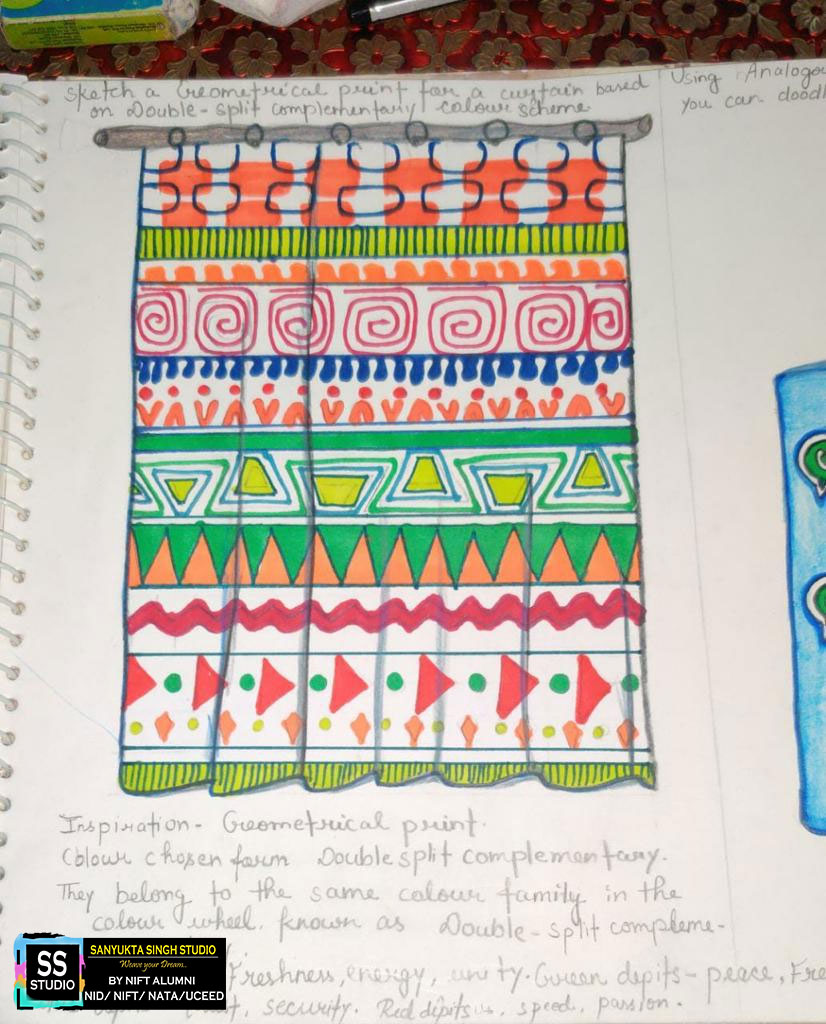 Sketch a Geometrical print for a curtain based
on Double-split complementary colour scheme
Using Analogou
you can doodl
Inspiration- Geometrical print.
Colour chosen form Double split complementary.
They belong to the same colour family in the
colour wheel, known as Double-split compleme-
Freshness, energy, unity. Green depits- peace, Fre
security. Red depits speed, passion.
SS
STUDIO
SANYUKTA SINGH STUDIO
Weave your Dream..
BY NIFT ALUMNI
NID/ NIFT/ NATA/UCEED